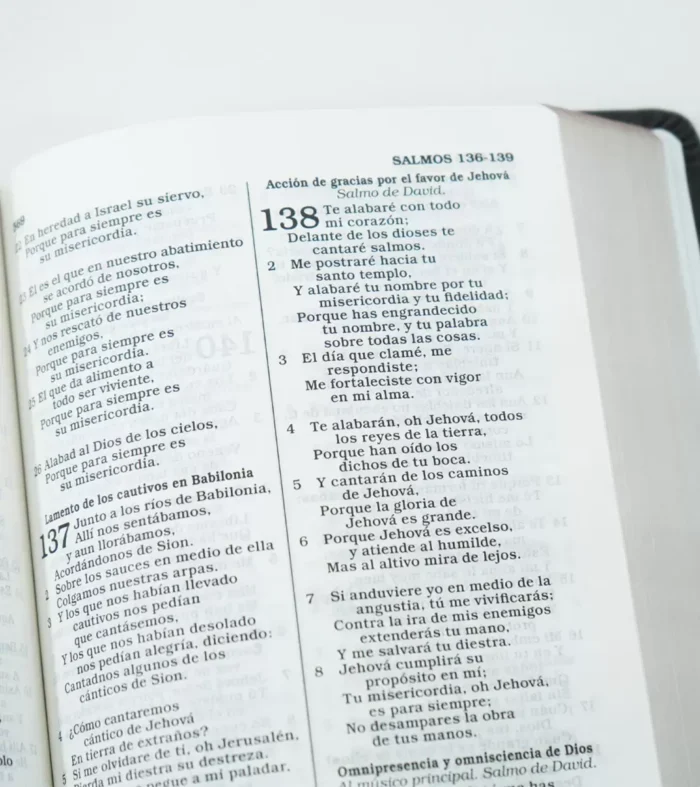 SALMOS 136-139
En heredad a Israel su siervo,
Porque para siempre es
su misericordia.
23 El es el que en nuestro abatimiento
se acordó de nosotros,
Porque para siempre es
su misericordia;
24 Y nos rescató de nuestros
enemigos,
Porque para siempre es
su misericordia.
25 El que da alimento a
todo ser viviente,
Porque para siempre es
su misericordia.
26 Alabad al Dios de los cielos,
Porque para siempre es
su misericordia.
Lamento de los cautivos en Babilonia
137 Junto a los ríos de Babilonia,
Allí nos sentábamos,
y aun llorábamos,
Acordándonos de Sion.
2 Sobre los sauces en medio de ella
Colgamos nuestras arpas.
3 Y los que nos habían llevado
cautivos nos pedían
que cantásemos,
Y los que nos habían desolado
nos pedían alegría, diciendo:
Cantadnos algunos de los
cánticos de Sion.
4 ¿Cómo cantaremos
cántico de Jehová
En tierra de extraños?
5 Si me olvidare de ti, oh Jerusalén,
mi diestra su destreza.
a mi paladar,
Acción de gracias por el favor de Jehová
Salmo de David.
138 Te alabaré con todo
mi corazón;
Delante de los dioses te
cantaré salmos.
2 Me postraré hacia tu
santo templo,
Y alabaré tu nombre por tu
misericordia y tu fidelidad;
Porque has engrandecido
tu nombre, y tu palabra
sobre todas las cosas.
3 El día que clamé, me
respondiste;
Me fortaleciste con vigor
en mi alma.
4 Te alabarán, oh Jehová, todos
los reyes de la tierra,
Porque han oído los
dichos de tu boca.
5 Y cantarán de los caminos
de Jehová,
Porque la gloria de
Jehová es grande.
6 Porque Jehová es excelso,
y atiende al humilde,
Mas al altivo mira de lejos.
7 Si anduviere yo en medio de la
angustia, tú me vivificarás;
Contra la ira de mis enemigos
extenderás tu mano,
Y me salvará tu diestra.
8 Jehová cumplirá su
propósito en mí;
Tu misericordia, oh Jehová,
es para siempre;
No desampares la obra
de tus manos.
Omnipresencia y omnisciencia de Dios
Al músico principal. Salmo de David.